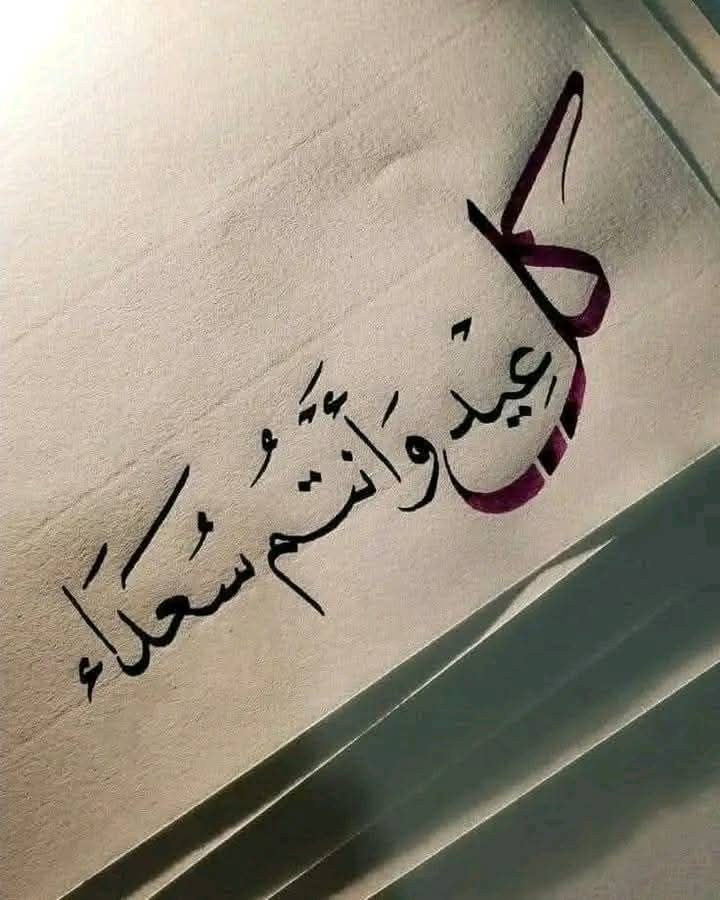 كل عِيْد وَأَنْتُم سُعَدَاء